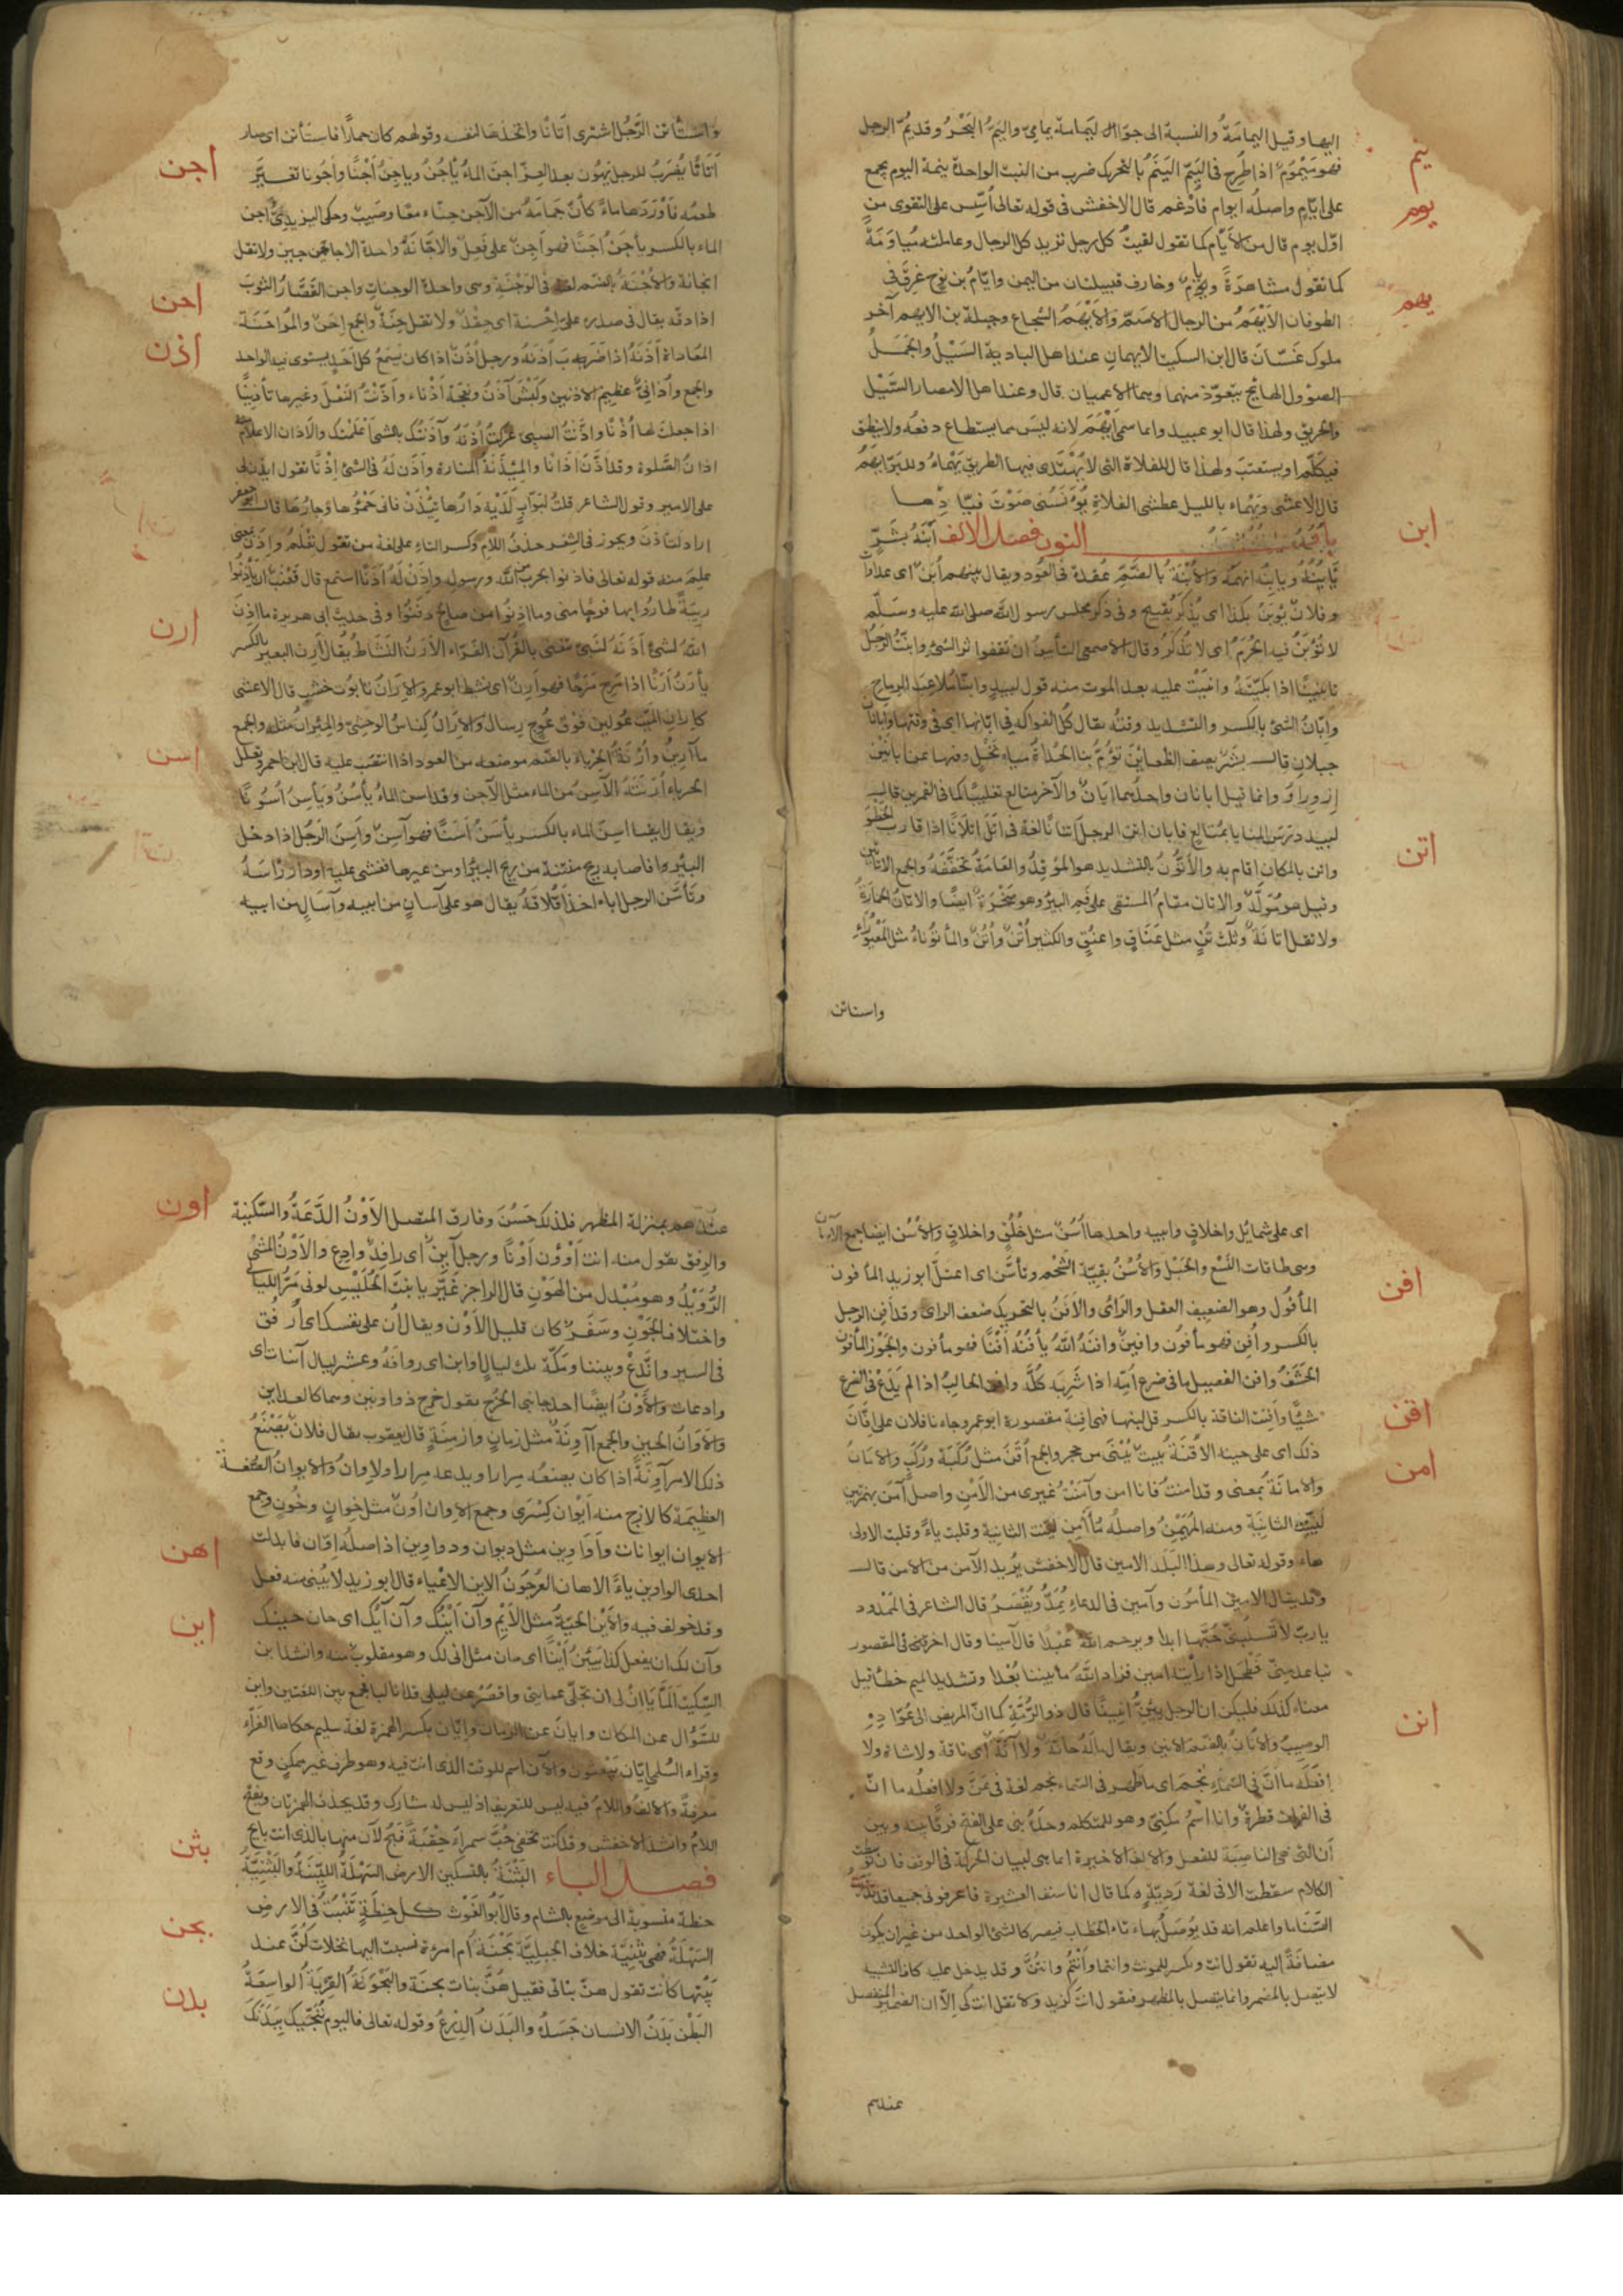 اليها وقيل اليمامة والنسبة الى جو اليمامة يمامى واليم البحر وقد يم الرجل
ينم
فهو ميموم اذا طرح فى اليم الينم بالتحريك ضرب من النبت الواحدة ينمة اليوم يجمع
يوم
على ايام واصله ايوام فادغم قال الاخفش فى قوله تعالى اسس على التقوى من
اول يوم قال من الايام كما تقول لقيت كل رجل تريد كل الرجال وعاملته مياومة
كما تقول مشاهرة ويام وخارف قبيلتان من اليمن ويام بن نوح غرق فى
يهم
الطوفان الايهم من الرجال الاصم والايهم الشجاع وجبلة بن الايهم آخر
ملوك غسان قال ابن السكيت الايهمان عند اهل البادية السيل والجمل
الصؤول الهايج يتعوذ منهما وهما الاعميان قال وعند اهل الامصار السيل
والحريق ولهذا قال ابو عبيد وانما سمى ايهم لانه ليس مما يستطاع دفعه ولا ينطق
فيكلم او يستعتب ولهذا قال للفلاة التى لا يهتدى فيها الطريق يهماء وللبر ايهم
قال الاعشى ويهماء بالليل عطشى الفلاة يؤنسنى صوت فيادها
النون فصل الالف ابنه بشر
ابن
يابنه ويابنه اتهمه والابنة بالضم عقدة فى العود ويقال بينهم ابن اى عداوات
وفلان يؤبن بكذا اى يذكر بقبيح وفى ذكر مجلس رسول الله صلى الله عليه وسلم
لا تؤبن فيه الحرم اى لا تذكر وقال الاصمعى التأبين ان تقفوا اثر الشئ وابنت الرجل
تأبينا اذا بكيته واثنيت عليه بعد الموت منه قول لبيد وابنا ملاعب الرماح
وابان الشئ بالكسر والتشديد وقته يقال كل الفواكه فى ابانها اى فى وقتها وابانان
جبلان قال بشر يصف الظعاين تؤم بها الحداة مياه نخل وفيها عن ابانين
ازورار وانما قيل ابانان واحدهما ابان والآخر متالع تغليبا كما فى القمرين قال
لبيد درس المنا بمتالع فابان اتن الرجل اتنانا لغة فى اتل اتلانا اذا قارب الخطو
اتن
واتن بالمكان اقام به والأتون بالتشديد هو الموقد والعامة تخففه والجمع الاتاتين
وقيل هو مولد والاتان مقام المستقى على فم البئر وهو صخرة ايضا والاتان الحمارة
ولا تقل اتانة وثلث اتن مثل عناق واعنق والكثير أتن وأتن والمأتوناء مثل المعيوراء
واستاتن
واستأتن الرجل اشترى اتانا واتخذها لنفسه وقولهم كان حمارا فاستأتن اى صار
اتانا يضرب للرجل يهون بعد العز اجن الماء يأجن ويأجن أجنا وأجونا تغير
اجن
طعمه فاوردها ماء كأن جمامه من الآجن حناء معا وصبيب وحكى اليزيدى اجن
الماء بالكسر يأجن اجنا فهو آجن على فعل والاجانة واحدة الاجاجين ولا تقل
انجانة والأجنة بالضم لغة فى الوجنة وهى واحدة الوجنات واجن القصار الثوب
احن
اذا دقه يقال فى صدره على احنة اى حقد ولا تقل حنة والجمع احن والمؤاحنة
اذن
المعاداة أذنه اذا ضربه أذنه ورجل أذن اذا كان يسمع كل احد يستوى فيه الواحد
والجمع وأذانى عظيم الاذنين وكبش آذن ونعجة أذناء وأذنت النعل وغيرها تأذينا
اذا جعلت لها أذنا واذنت الصبى عركت أذنه وآذنتك بالشئ اعلمتك والاذان الاعلام
اذان الصلوة وقد أذن أذانا والمئذنة المنارة وأذن له فى الشئ إذنا تقول ايذن لى
على الامير وقول الشاعر قلت لبواب لديه دارها تيذن فانى حمؤها وجارها قال ابو جعفر
اراد لتأذن ويجوز فى الشعر حذف اللام وكسر التاء على لغة من تقول تعلم وأذن بمعنى
علم منه قوله تعالى فاذنوا بحرب من الله ورسوله وأذن له أذنا استمع قال قعنب ان يأذنوا
ريبة طاروا بها فرحا منى وما اذنوا من صالح دفنوا وفى حديث ابى هريرة ما اذن
ارن
الله لشئ أذنه لنبى يتغنى بالقرآن الفراء الأرن النشاط يقال أرن البعير بالكسر
يأرن أرنا اذا مرح مرحا فهو أرن اى نشط ابو عمرو الإران تابوت خشب قال الاعشى
كاران الميت عولين فوق عوج رسال والإران كناس الوحشى والمئران مثله والجمع
مآرين وأرنة الحرباء بالضم موضعه من العود اذا انتصب عليه قال ابن احمر وتعلل
اسن
الحرباء أرنته الآسن من الماء مثل الآجن وقد اسن الماء يأسن ويأسن أسونا
ويقال ايضا اسن الماء بالكسر يأسن أسنا فهو آسن وأسن الرجل اذا دخل
البئر واصابه ريح منتنة من ريح البئر او من غيرها فغشى عليه او دار رأسه
وتأسن الرجل اباه اخذ اخلاقه يقال هو على آسان من ابيه وآسال من ابيه
اى على شمايل واخلاق من ابيه واحدها أسن مثل خلق واخلاق والأسن ايضا جمع الآسان
وهى طاقات النسع والحبل والأسن بقية الشحم وتأسن اى اعتل ابو زيد المأفون
افن
المأفوك وهو الضعيف العقل والرأى والأفن بالتحريك ضعف الراى وقد أفن الرجل
بالكسر وأفن فهو مأفون وافين وافنه الله يأفنه أفنا فهو مأفون والجوز المأفون
الحشف وافن الفصيل ما فى ضرع امه اذا شربه كله وافن الحالب اذا لم يدع فى الضرع
شيئا وأفنت الناقة بالكسر قل لبنها فهى افنة مقصورة ابو عمرو جاءنا فلان على افان
اقن
ذلك اى على حينه الأقنة بيت يبنى من حجر والجمع أقن مثل ركبة وركب والامان
امن
والامانة بمعنى وقد امنت فانا امن وآمنت غيرى من الأمن واصل آمن بهمزتين
لينت الثانية ومنه المهيمن واصله مؤأمن لينت الثانية وقلبت ياء وقلبت الاولى
هاء وقوله تعالى وهذا البلد الامين قال الاخفش يريد الآمن من الامن قال
وقد يقال الامين المأمون وآمين فى الدعاء يمد ويقصر قال الشاعر فى الممدود
يا رب لا تسلبنى حبها ابدا ويرحم الله عبدا قال آمينا وقال آخر فى المقصور
تباعد منى فطحل اذ رأيته امين فزاد الله ما بيننا بعدا وتشديد الميم خطأ قيل
معناه كذلك فليكن ان الرجل يئن أنينا قال ذو الرمة كما ان المريض الى عواده
انن
الوصب والأنان بالضم الانين ويقال ماله حانة ولا آنة اى ناقة ولا شاة ولا
افعله ما ان فى السماء نجم اى ما ظهر فى السماء نجم لغة فى عن ولا افعله ما ان
فى الفرات قطرة وانا اسم مكنى وهو للمتكلم وحده بنى على الفتح فرقا بينه وبين
أن التى هى الناصبة للفعل والالف الاخيرة انما هى لبيان الحركة فى الوقف فان توسطت
الكلام سقطت الا فى لغة رديئة كما قال انا سيف العشيرة فاعرفونى جميعا قد تذريت
السناما واعلم انه قد يوصل بهاء تاء الخطاب فيصير كالشئ الواحد من غير ان يكون
مضافة اليه تقول انت وتكسر للمونث وانتما وانتم وانتن وقد يدخل عليه كاف التشبيه
لا يتصل بالمضمر وانما يتصل بالمظهر فتقول انت كزيد ولا تقل انت كى الا ان الضمير المنفصل
عندهم
عندهم بمنزلة المظهر فلذلك حسن وفارق المتصل الأون الدعة والسكينة
اون
والرفق تقول منه انت أؤون أونا ورجل آين اى رافه وادع والأون المشى
الرويد وهو مبدل من الهون قال الراجز غير يا بنت الحليس لونى مر الليالى
واختلاف الجون وسفر كان قليل الأون ويقال أن على نفسك اى ارفق
فى السير واتدع وبيننا ومكة ثلث ليال اوابن اى روافه وعشر ليال آينات اى
وادعات والأون ايضا احد جانبى الخرج تقول خرج ذو اونين وهما كالعدلين
والاوان الحين والجمع آونة مثل زمان وازمنة قال يعقوب يقال فلان يصنع
ذلك الامر آونة اذا كان يصنعه مرارا ويدعه مرارا والاوان والايوان الصفة
العظيمة كالازج منه ايوان كسرى وجمع الاوان أون مثل خوان وخون وجمع
الايوان ايوانات وأواوين مثل ديوان ودواوين اذ اصله اوان فابدلت
اهن
احدى الواوين ياء الاهان العرجون الاين الاعياء قال ابو زيد لا يبنى منه فعل
اين
وقد خولف فيه والأين الحية مثل الأيم وآن أينك وآن آنك اى حان حينك
وآن لك ان تفعل كذا يئين أينا اى حان مثل انى لك وهو مقلوب منه وانشد ابن
السكيت ألما يان لى ان تجلى عمايتى واقصر عن ليلى بلى قد انى ليا فجمع بين اللغتين واين
للسؤال عن المكان وايان عن الزمان وإيان بكسر الهمزة لغة سليم حكاها الفراء
وقراء السلمى إيان يبعثون والآن اسم للوقت الذى انت فيه وهو ظرف غير متمكن وقع
معرفة والالف واللام فيه ليس للتعريف اذ ليس له شارك وقد يحذف الهمزتان ويفتح
اللام وانشد الاخفش وقد كنت تخفى حب سمراء حقبة فبح لان منها بالذى انت بايح
بثن
فصل الباء البثنة بالتسكين الارض السهلة اللينة والبثنية
حنطة منسوبة الى موضع بالشام وقال ابو الغوث كل حنطة تنبت فى الارض
بحن
السهلة فهى بثنية خلاف الجبلية بحنة أم امرءة نسبت اليها نخلات كن عند
بيتها كانت تقول هن بناتى فقيل هن بنات بحنة والبحونة القربة الواسعة
بدن
البطن بدن الانسان جسده والبدن الدرع وقوله تعالى فاليوم ننجيك ببدنك